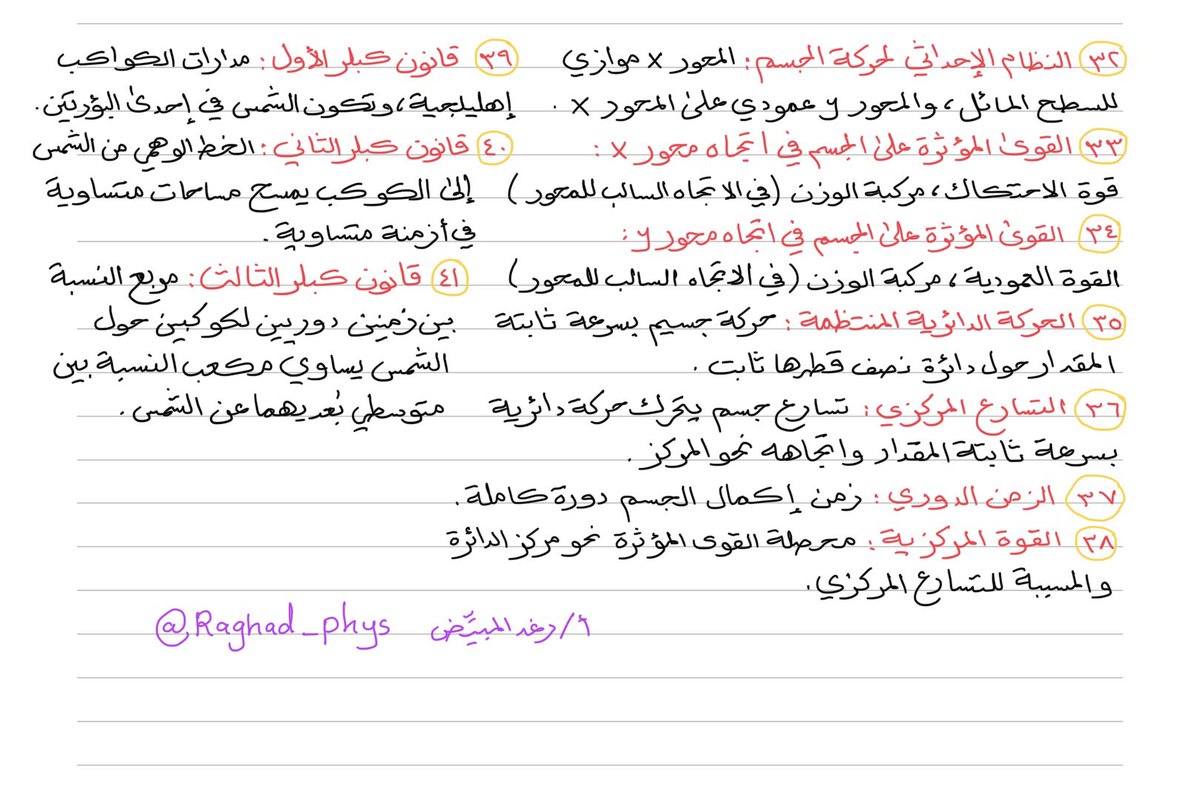 ٣٢ النظام الإحداثي لحركة الجسم: المحور x موازي
للسطح المائل، والمحور y عمودي على المحور x.
٣٣ القوى المؤثرة على الجسم في اتجاه محور x:
قوة الاحتكاك، مركبة الوزن (في الاتجاه السالب للمحور)
٣٤ القوى المؤثرة على الجسم في اتجاه محور y:
القوة العمودية، مركبة الوزن (في الاتجاه السالب للمحور)
٣٥ الحركة الدائرية المنتظمة: حركة جسيم بسرعة ثابتة
المقدار حول دائرة نصف قطرها ثابت.
٣٦ التسارع المركزي: تسارع جسم يتحرك حركة دائرية
بسرعة ثابتة المقدار واتجاهه نحو المركز.
٣٧ الزمن الدوري: زمن إكمال الجسم دورة كاملة.
٣٨ القوة المركزية: محصلة القوى المؤثرة نحو مركز الدائرة
والمسببة للتسارع المركزي.
٣٩ قانون كبلر الأول: مدارات الكواكب
إهليلجية، وتكون الشمس في إحدى البؤرتين.
٤٠ قانون كبلر الثاني: الخط الوهمي من الشمس
إلى الكوكب يمسح مساحات متساوية
في أزمنة متساوية.
٤١ قانون كبلر الثالث: مربع النسبة
بين زمنين دوريين لكوكبين حول
الشمس يساوي مكعب النسبة بين
متوسطي بُعديهما عن الشمس.
أ/رغد المبيّض @Raghad_phys